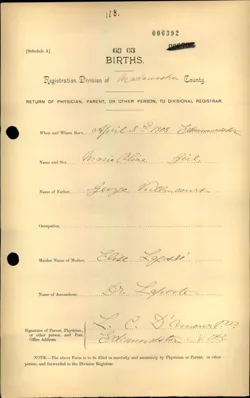 118.
006392
[Schedule A]
63 63
BIRTHS.
Registration Division of Madawaska County.
RETURN OF PHYSICIAN, PARENT, OR OTHER PERSON, TO DIVISIONAL REGISTRAR.
When and Where Born, April 3rd 1908 Edmundston
Name and Sex, Marie Girl
Name of Father, George
Occupation,
Maiden Name of Mother, Elise
Name of Accoucheur, Dr. Laporte
L. C. D'Amours
Signature of Parent, Physician, or other person, and Post Office Address
Edmundston N.B.
NOTE.—The above Form is to be filled in carefully and accurately by Physician or Parent, or other person, and forwarded to the Division Registrar.